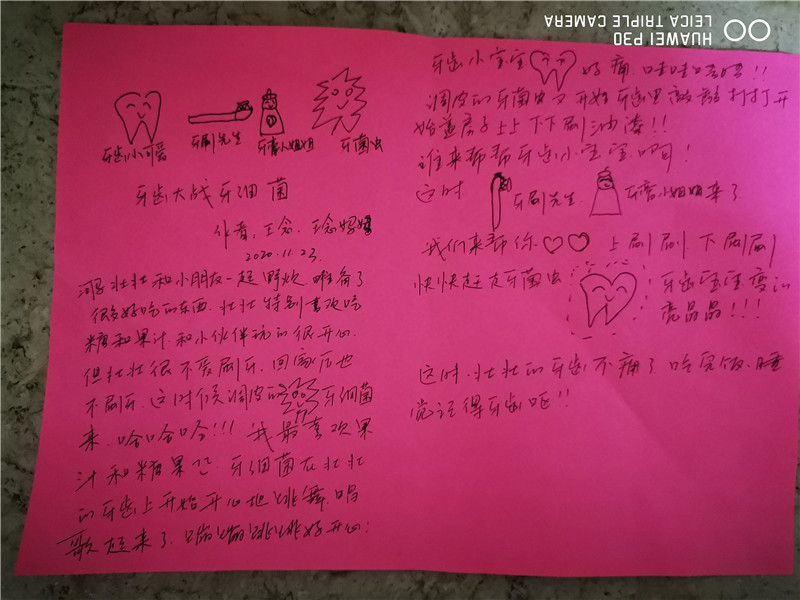 牙齿小可爱 牙刷先生 牙膏小姐姐 牙菌虫
牙齿大战牙细菌
作者:王念、王念妈妈
2020.11.23
壮壮和小朋友一起野炊 准备了
很多好吃的东西.壮壮特别喜欢吃
糖和果汁 和小伙伴玩的很开心.
但壮壮很不爱刷牙,回家后也
不刷牙.这时候调皮的牙细菌
来.哈哈哈!!! 我最喜欢果
汁和糖果.牙细菌在壮壮
的牙齿上开始开心地跳舞.唱
歌起来了.蹦蹦跳跳好开心:
牙齿小宝宝 好痛.哇哇!!
调皮的牙菌虫又开始牙齿里敲敲打打开
始盖房子上上下下刷油漆!!
谁来帮帮牙齿小宝宝啊!
这时 牙刷先生. 牙膏小姐姐来了
我们来帮你 上刷刷 下刷刷
快快赶走牙菌虫 牙齿宝宝变的
亮晶晶!!!
这时.壮壮的牙齿不痛了 吃完饭.睡
觉记得牙齿呃!!
HUAWEI P30
LEICA TRIPLE CAMERA